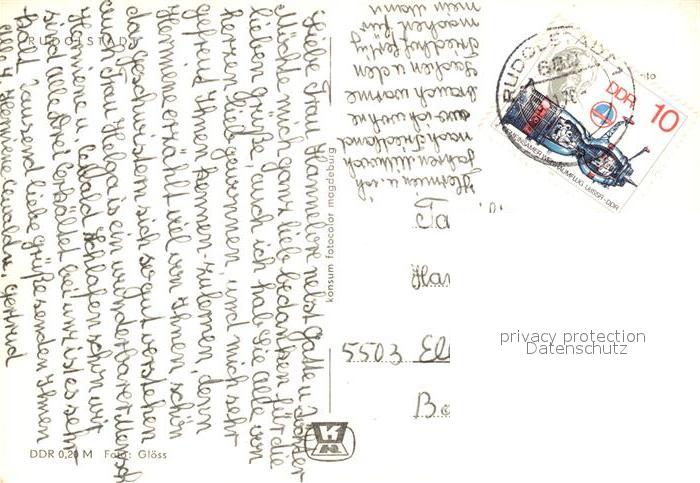 RUDOLSTADT
Liebe Frau Hannelore nebst Gatte u. Tochter
Möchte mich ganz lieb bedanken für die
lieben Grüße, auch ich hab Sie alle von
herzen lieb gewonnen, und mich sehr
gefreut Ihnen kennen-zulernen, denn
Hermiene erzählt viel von Ihnen, schön
das geschwistern sich so gut verstehen
auch Frau Helga ist ein wunderbarer Mensch
Hermiene u. Ewald schlafen schon wir
sind alle drei erkältet bei uns ist es sehr
kalt. Tausend liebe Grüße senden Ihnen
alle 4 Hermiene Ewald u. Gertrud
Hermien u. ich
fahren Mittwoch
nach Friedland
aus ich wohne
brauch warme
Sachen u. den
machen für
mein Mann
DDR 0,20 M Foto: Glöss
konsum fotocolor magdeburg
RUDOLSTADT 1
DDR 10
GEMEINSAMER WELTRAUMFLUG UdSSR-DDR
Fa
Han
5503 Ell
Ba
privacy protection
Datenschutz